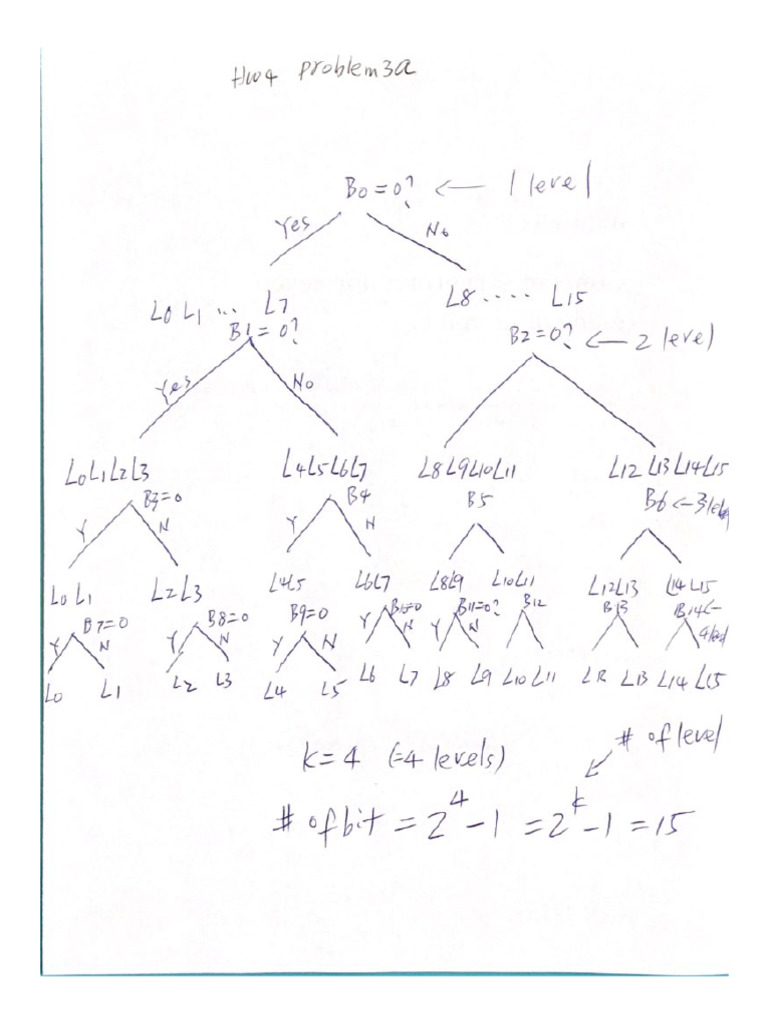 Hw4 problem3a
B0 = 0? ← 1 level
Yes No
L0 L1 ... L7 L8 ..... L15
B1 = 0? B2 = 0? ← 2 level
Yes No
L0L1L2L3 L4L5L6L7 L8L9L10L11 L12 L13 L14 L15
B3=0 B4 B5 B6 ← 3 level
Y N Y N
L0 L1 L2 L3 L4L5 L6L7 L8L9 L10L11 L12L13 L14 L15
B7=0 B8=0 B9=0 B10=0 B11=0? B12 B13 B14 ←
Y N Y N Y N Y N Y N 4 level
L0 L1 L2 L3 L4 L5 L6 L7 L8 L9 L10 L11 L12 L13 L14 L15
k = 4 (=4 levels) # of level
# of bit = 2^4 - 1 = 2^k - 1 = 15